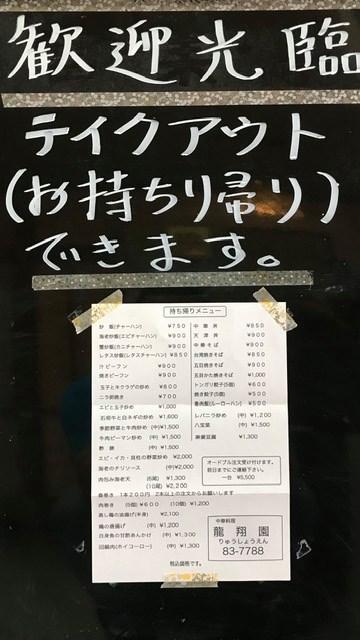 歓迎光臨
テイクアウト
(お持ち帰り)
できます。
持ち帰りメニュー
炒 飯(チャーハン) ¥750
海老炒飯(エビチャーハン) ¥900
蟹炒飯(カニチャーハン) ¥900
レタス炒飯(レタスチャーハン) ¥850
汁ビーフン ¥900
焼きビーフン ¥900
玉子とキクラゲの炒め ¥800
ニラ卵焼き ¥700
エビと玉子炒め ¥1,000
石垣牛と白ネギの炒め ¥1,600
季節野菜と牛肉炒め (中)¥1,500
牛肉ピーマン炒め (中) ¥1,500
酢 豚 (中) ¥1,500
エビ・イカ・貝柱の野菜炒め ¥2,000
海老のチリソース (中)¥2,000
肉包み海老天 (6尾) ¥1,300
(10尾) ¥2,200
春巻き 1本200円 2本以上の注文からお願いします
肉巻き (5個) ¥600 (10個) ¥1,200
蒸し鶏の油揚げ(半身) ¥2,100
鶏の唐揚げ (中) ¥1,200
白身魚の甘酢あんかけ (中) ¥1,300
回鍋肉(ホイコーロー) (中) ¥1,300
中 華 丼 ¥850
天 津 丼 ¥900
中 華 そ ば ¥900
台湾焼きそば ¥850
五目焼きそば ¥900
五目かた焼きそば ¥1,000
トンガリ餃子(5個) ¥600
焼き餃子(5個) ¥500
魯肉飯(ルーローハン) ¥500
レバニラ炒め (中) ¥1,200
八宝菜 (中) ¥1,500
麻婆豆腐 ¥1,300
オードブル注文受け付けます。
前日までにご連絡下さい。
一台 ¥6,500
中華料理
龍翔園
りゅうしょうえん
83-7788
税込価格です。